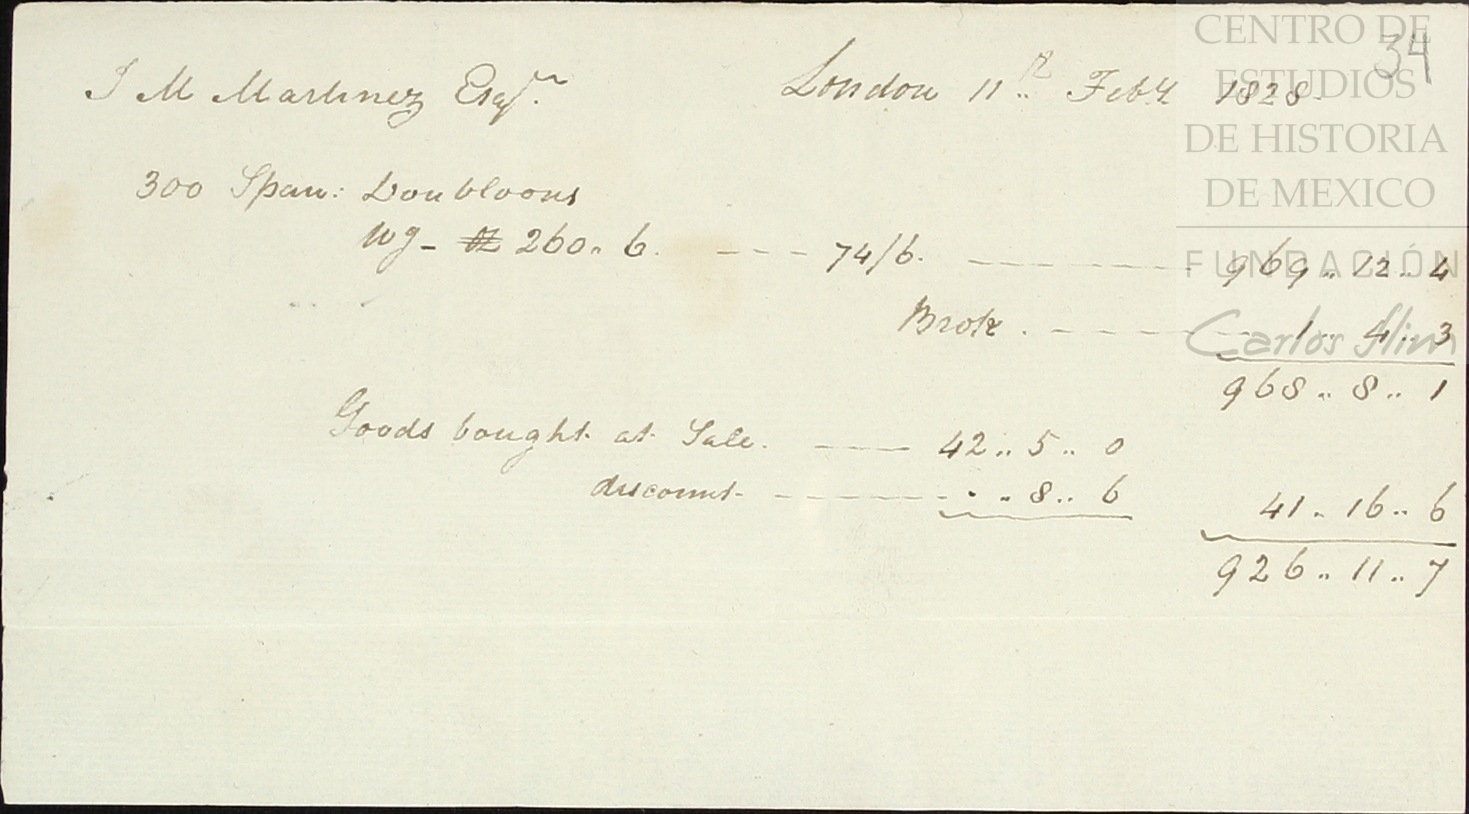 34
J M Martinez Esqr. London 11th Feby 1828.
300 Span: Doubloons
Wg - 260.. 6. - - - 74/6. - - - 969.. 12.. 4
Brok. - - - 1.. 4.. 3
968.. 8.. 1
Goods bought at Sale. - - - 42.. 5.. 0
discount - - - .. 8.. 6 41.. 16.. 6
926.. 11.. 7
CENTRO DE
ESTUDIOS
DE HISTORIA
DE MEXICO
FUNDACIÓN
Carlos Slim